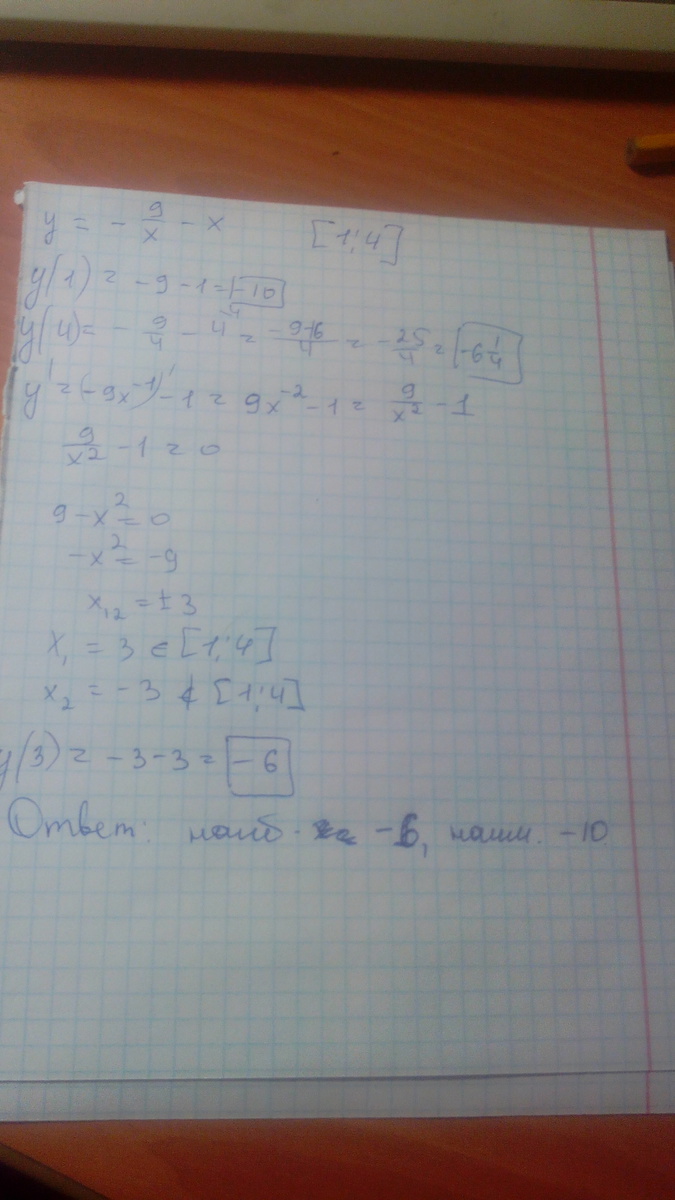 y = - 9/x - x [1; 4]
y(1) = -9 - 1 = -10
y(4) = - 9/4 - 4 = -9-16/4 = - 25/4 = -6 1/4
y' = (-9x⁻¹)' - 1 = 9x⁻² - 1 = 9/x² - 1
9/x² - 1 = 0
9 - x² = 0
-x² = -9
x₁₂ = ±3
x₁ = 3 ∈ [1; 4]
x₂ = -3 ∉ [1; 4]
y(3) = -3 - 3 = -6
Ответ: наиб. -6, наим. -10